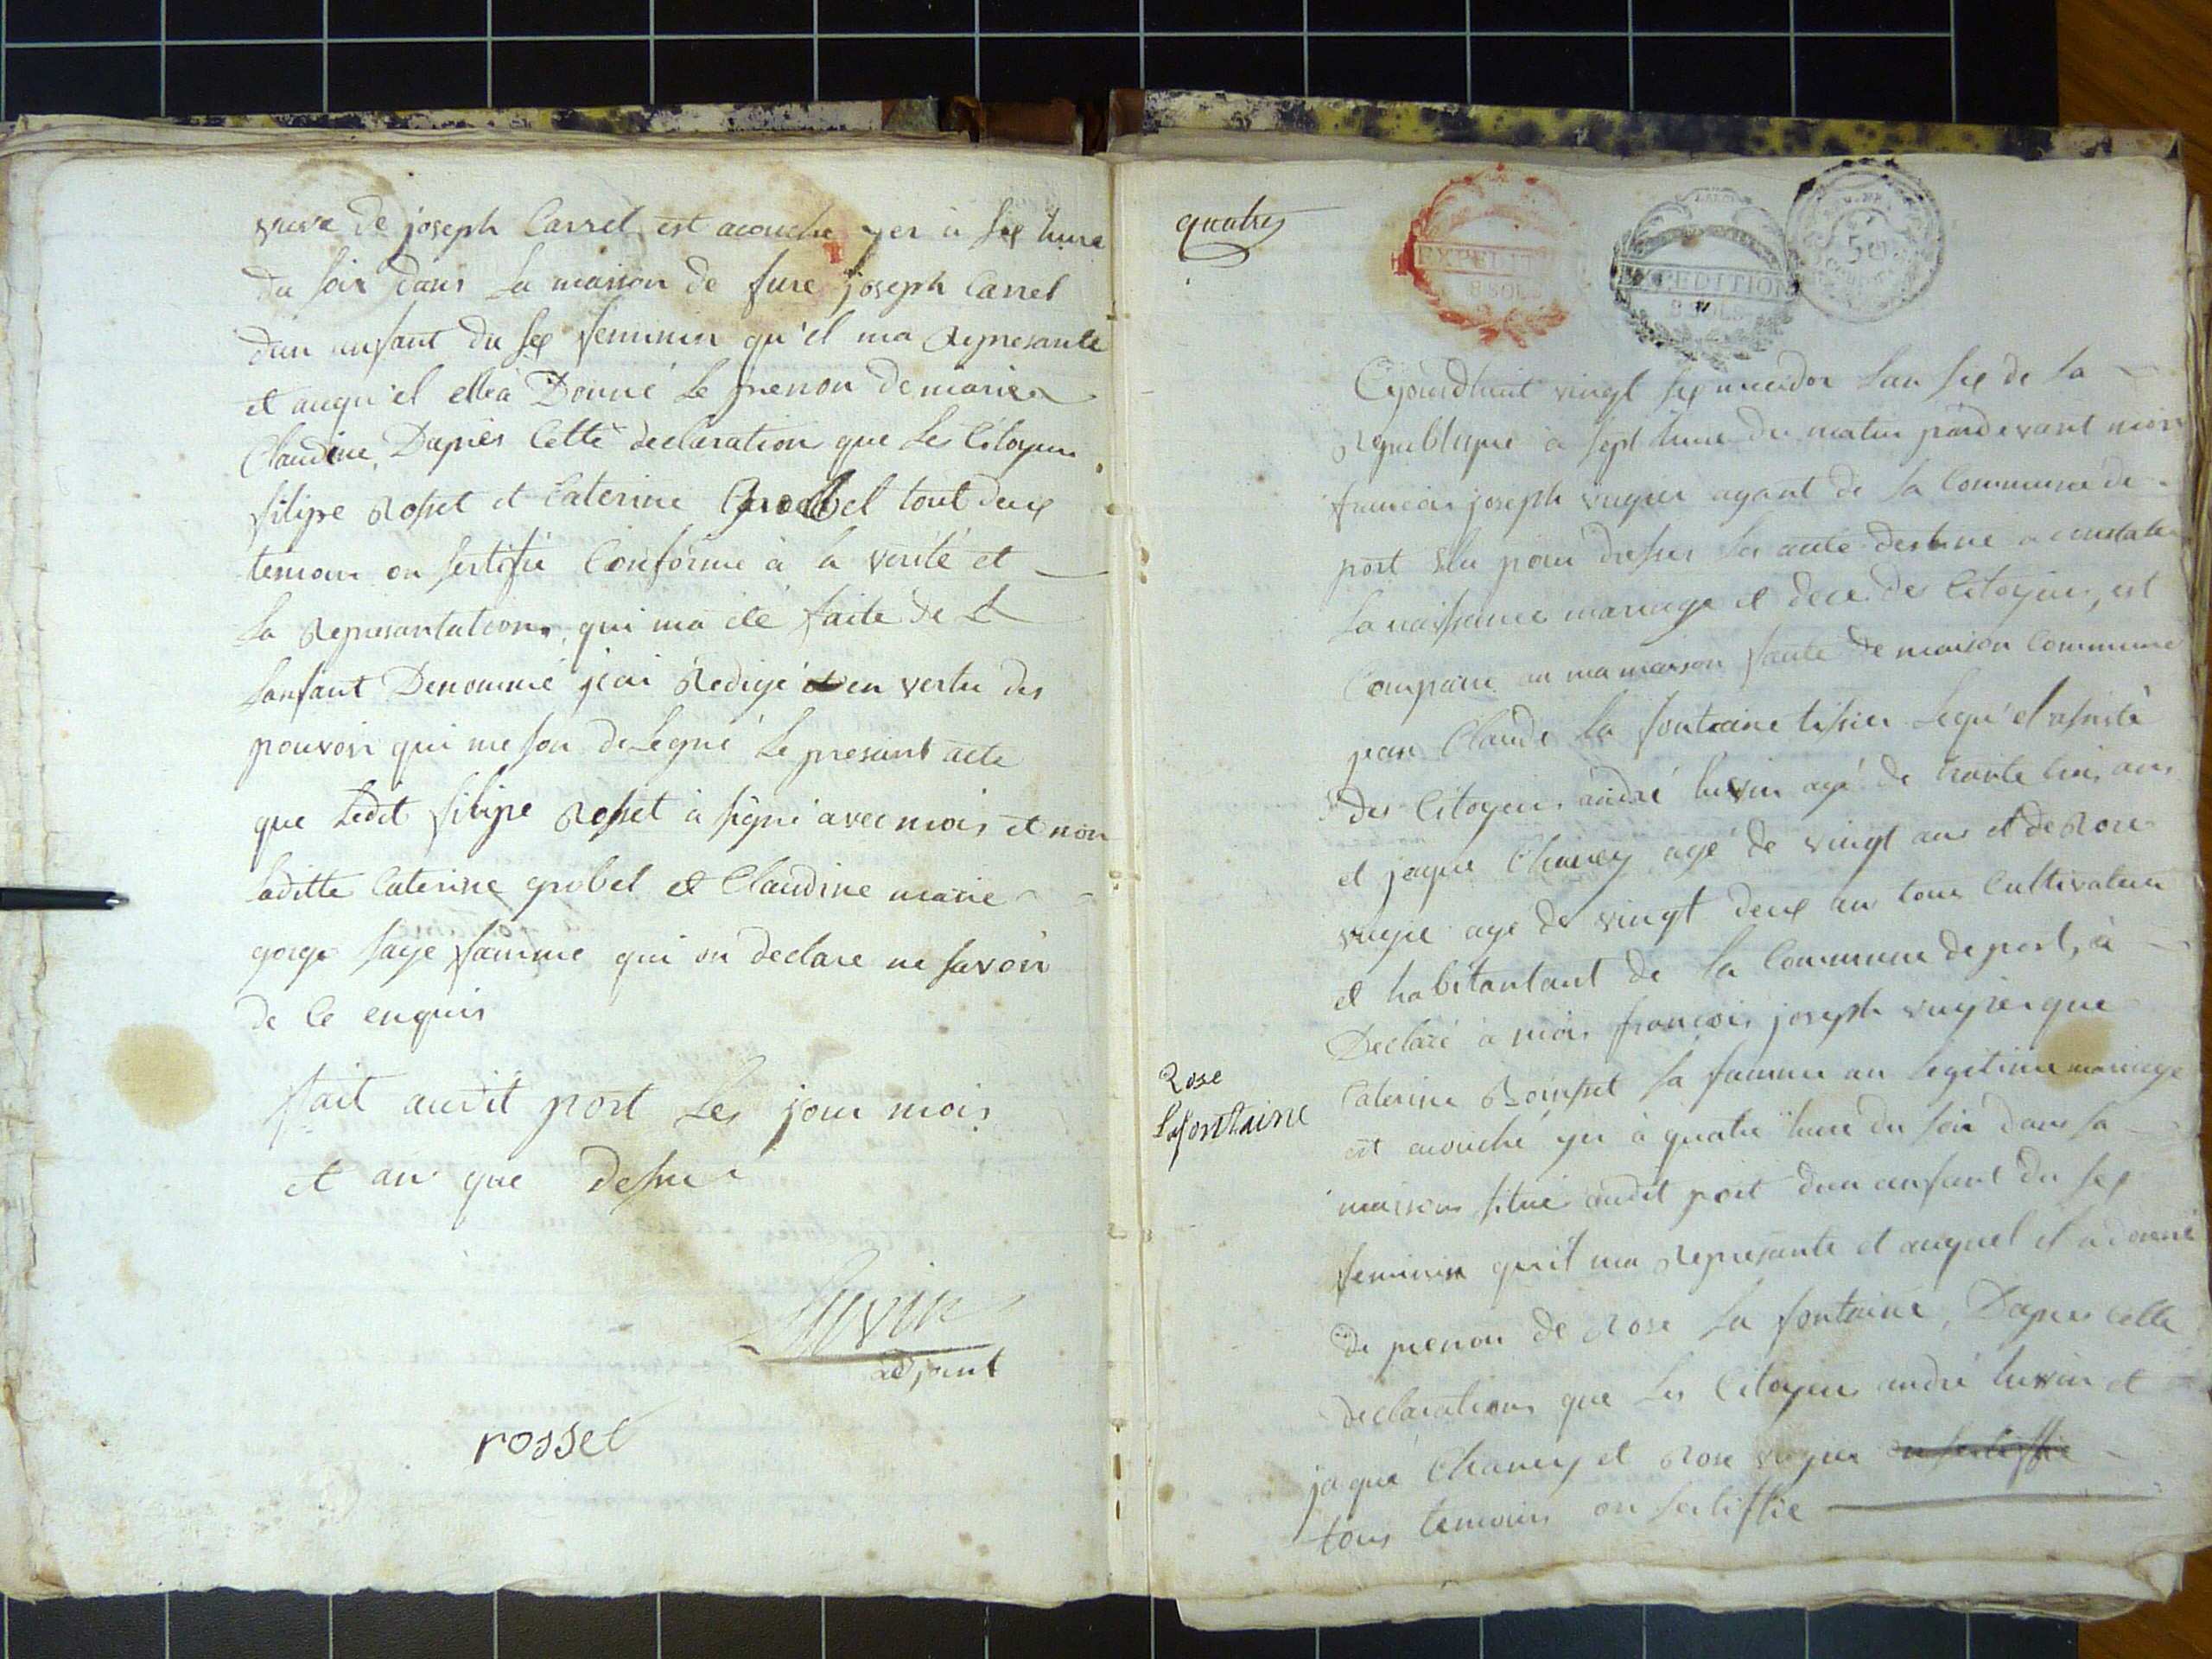 veuve de joseph Carrel est acouche yer à six hure
du soir dans La maison de fure joseph Carrel
dun anfant du sex feminin qu'el ma Represante
et auqu'el elle à Donné Le prenon de marie
Claudine, Dapres Cette declaration que Les Citoyens
filipe Rosset et Caterine Grobel tout deux
temoin on sertifie Conforme à la verité et
La Represantation, qui ma ete faite de L
Lanfant Denommé jeai Redigé en vertu des
pouvoir qui me son deLegué Le presant acte
que Ledit filipe Rosset à signé avec mois et non
Laditte Caterine grobel et Claudine marie
gorge sage famme qui on declare ne savoir
de Ce enquis
fait audit port Les jour mois
et an que dessus
Luvin
adjoint
rosset
quatre
EXPEDITION
8 SOLS
EXPEDITION
8 SOLS
50
Cejourdhuit vingt six messidor Lan six de La
Republique à sept hure du matin pardevant mois
francois joseph vugier agant de La Commune de
port elu pour dresser Les acte destine a constater
La naissance mariage et dece des Citoyens, est
Comparu au ma maison faute de maison Commune
jean Claude La fontaine tissier Lequ'el assisté
des Citoyens andré Luvin agé de trante cinq ans
et jaque Chancy agé de vingt ans et de Rose
vugie age de vingt deux an tous Cultivateur
et habitantant de La Commune de port, à
Declaré à mois francois joseph vugier que
Caterine Rousset sa famme an Legitime mariage
est acouché yer à quatre hure du soir dans sa
maison situé audit port dun anfant du sex
feminin qu'il ma Represante et auquel il a donné
de prenon de Rose La fontaine, Dapres Cette
declarations que Les Citoyens andré Luvin et
jaque Chancy et Rose vugier on sertiffie
tous temoins on sertiffie
Rose
Lafontaine